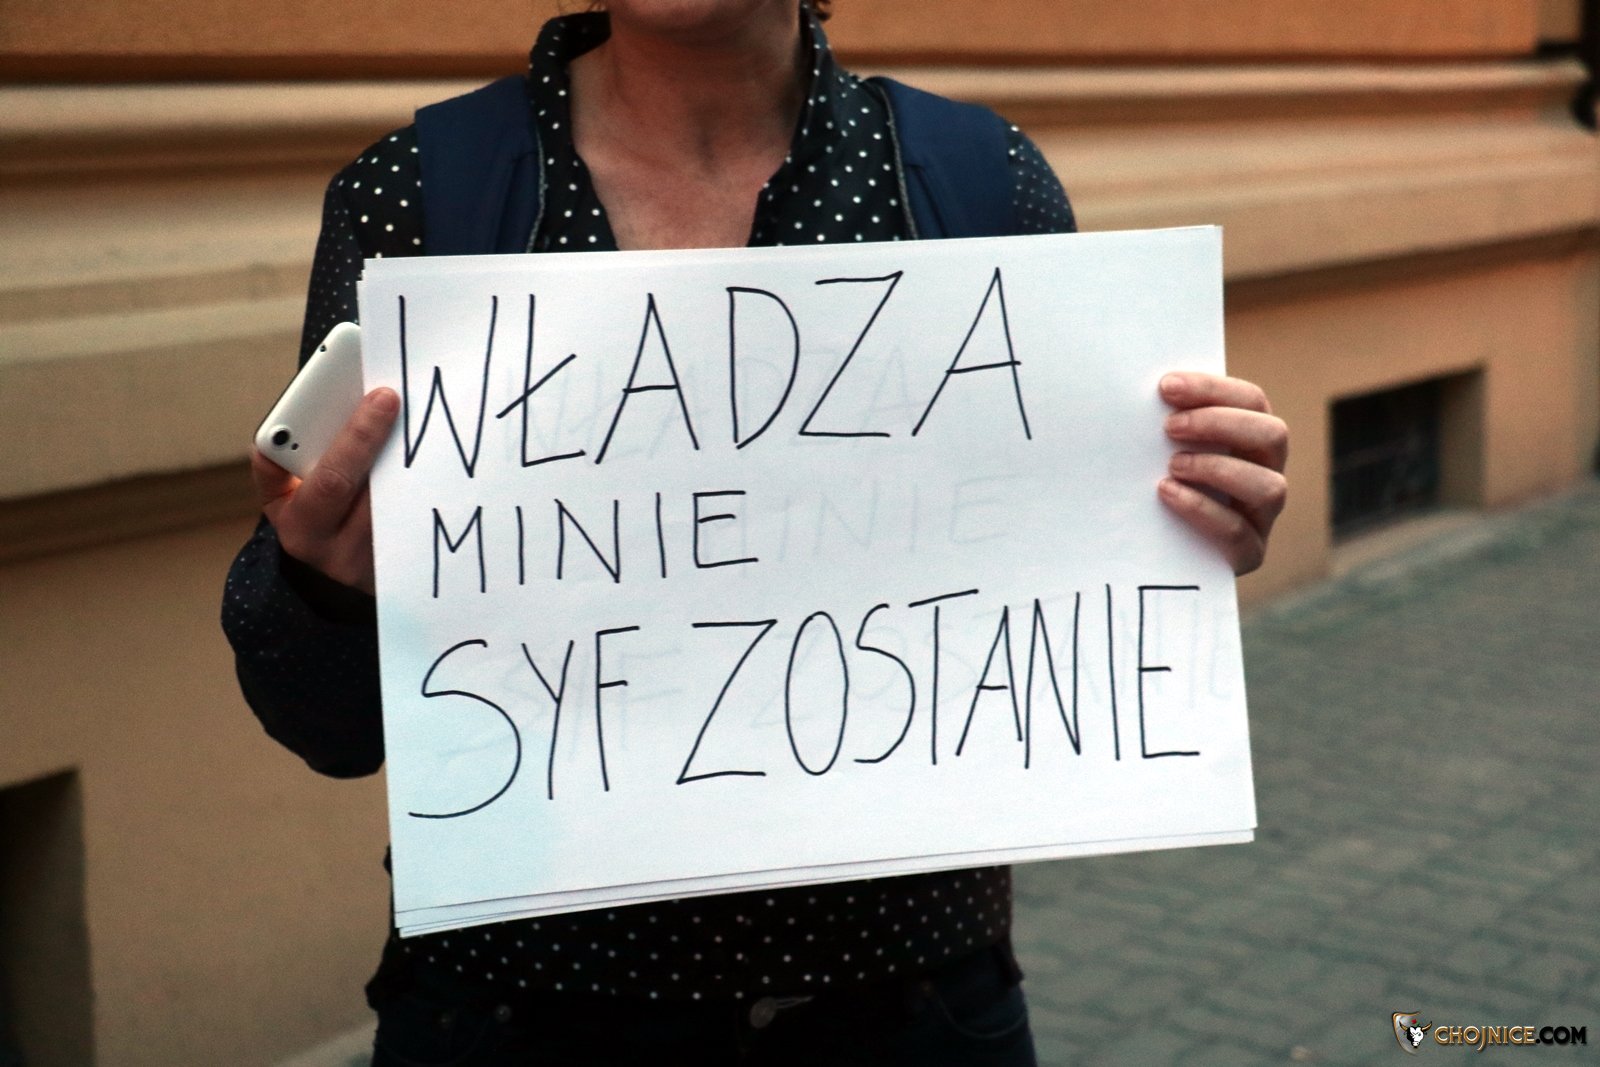 WŁADZA
MINIE
SYF ZOSTANIE
CHOJNICE.COM